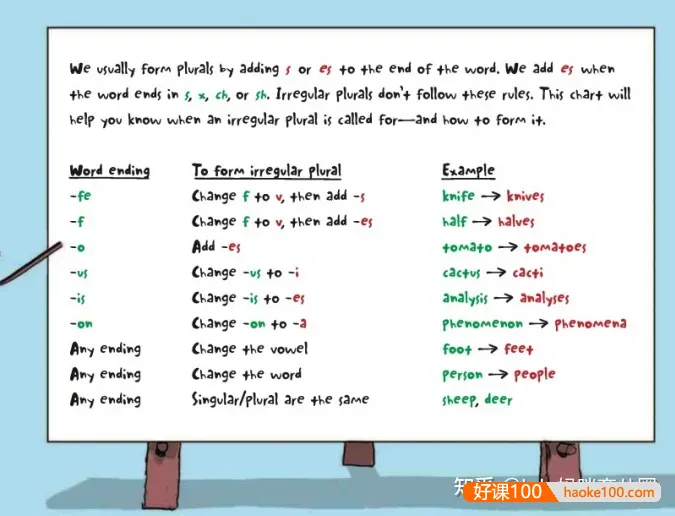 We usually form plurals by adding s or es to the end of the word. We add es when
the word ends in s, x, ch, or sh. Irregular plurals don't follow these rules. This chart will
help you know when an irregular plural is called for—and how to form it.
Word ending To form irregular plural Example
-fe Change f to v, then add -s knife → knives
-f Change f to v, then add -es half → halves
-o Add -es tomato → tomatoes
-us Change -us to -i cactus → cacti
-is Change -is to -es analysis → analyses
-on Change -on to -a phenomenon → phenomena
Any ending Change the vowel foot → feet
Any ending Change the word person → people
Any ending Singular/plural are the same sheep, deer
知乎
好课100 haoke100.com